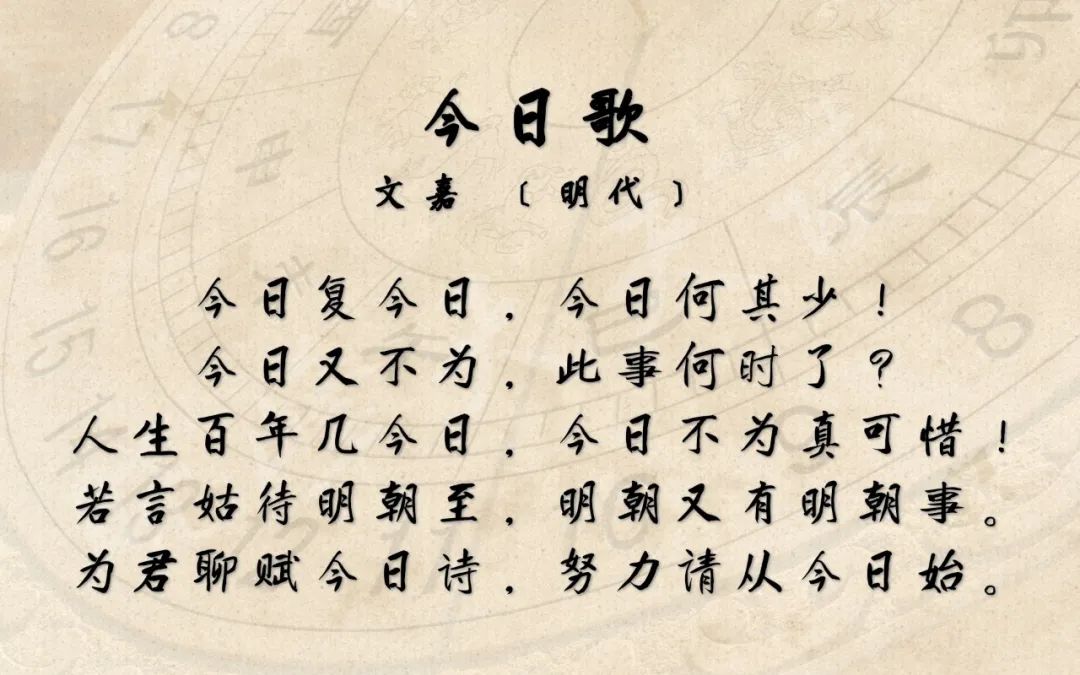 今日歌
文嘉 〔明代〕
今日复今日，今日何其少！
今日又不为，此事何时了？
人生百年几今日，今日不为真可惜！
若言姑待明朝至，明朝又有明朝事。
为君聊赋今日诗，努力请从今日始。